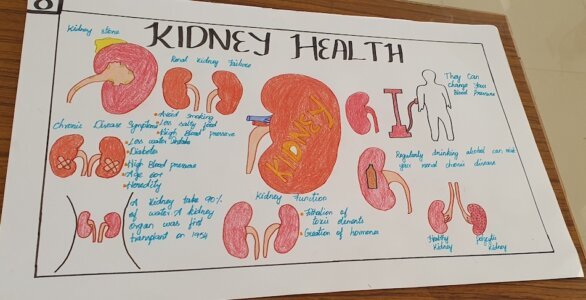 8
KIDNEY HEALTH
Kidney stone
Renal Kidney Failure
They Can
change your
Blood Pressure
• Avoid smoking
• Less salty food
• High Blood pressure
Chronic Disease Symptoms
• Less water intake
• Diabetes
• High Blood pressure
• Age 60+
• Heredity
KIDNEY
Regularly drinking alcohol can risk
your renal chronic disease
A Kidney take 90%
of water. A kidney
organ was first
transplant on 1954
Kidney Function
• Filtration of
toxic elements
• Creation of hormones
Healthy
Kidney
Kidney